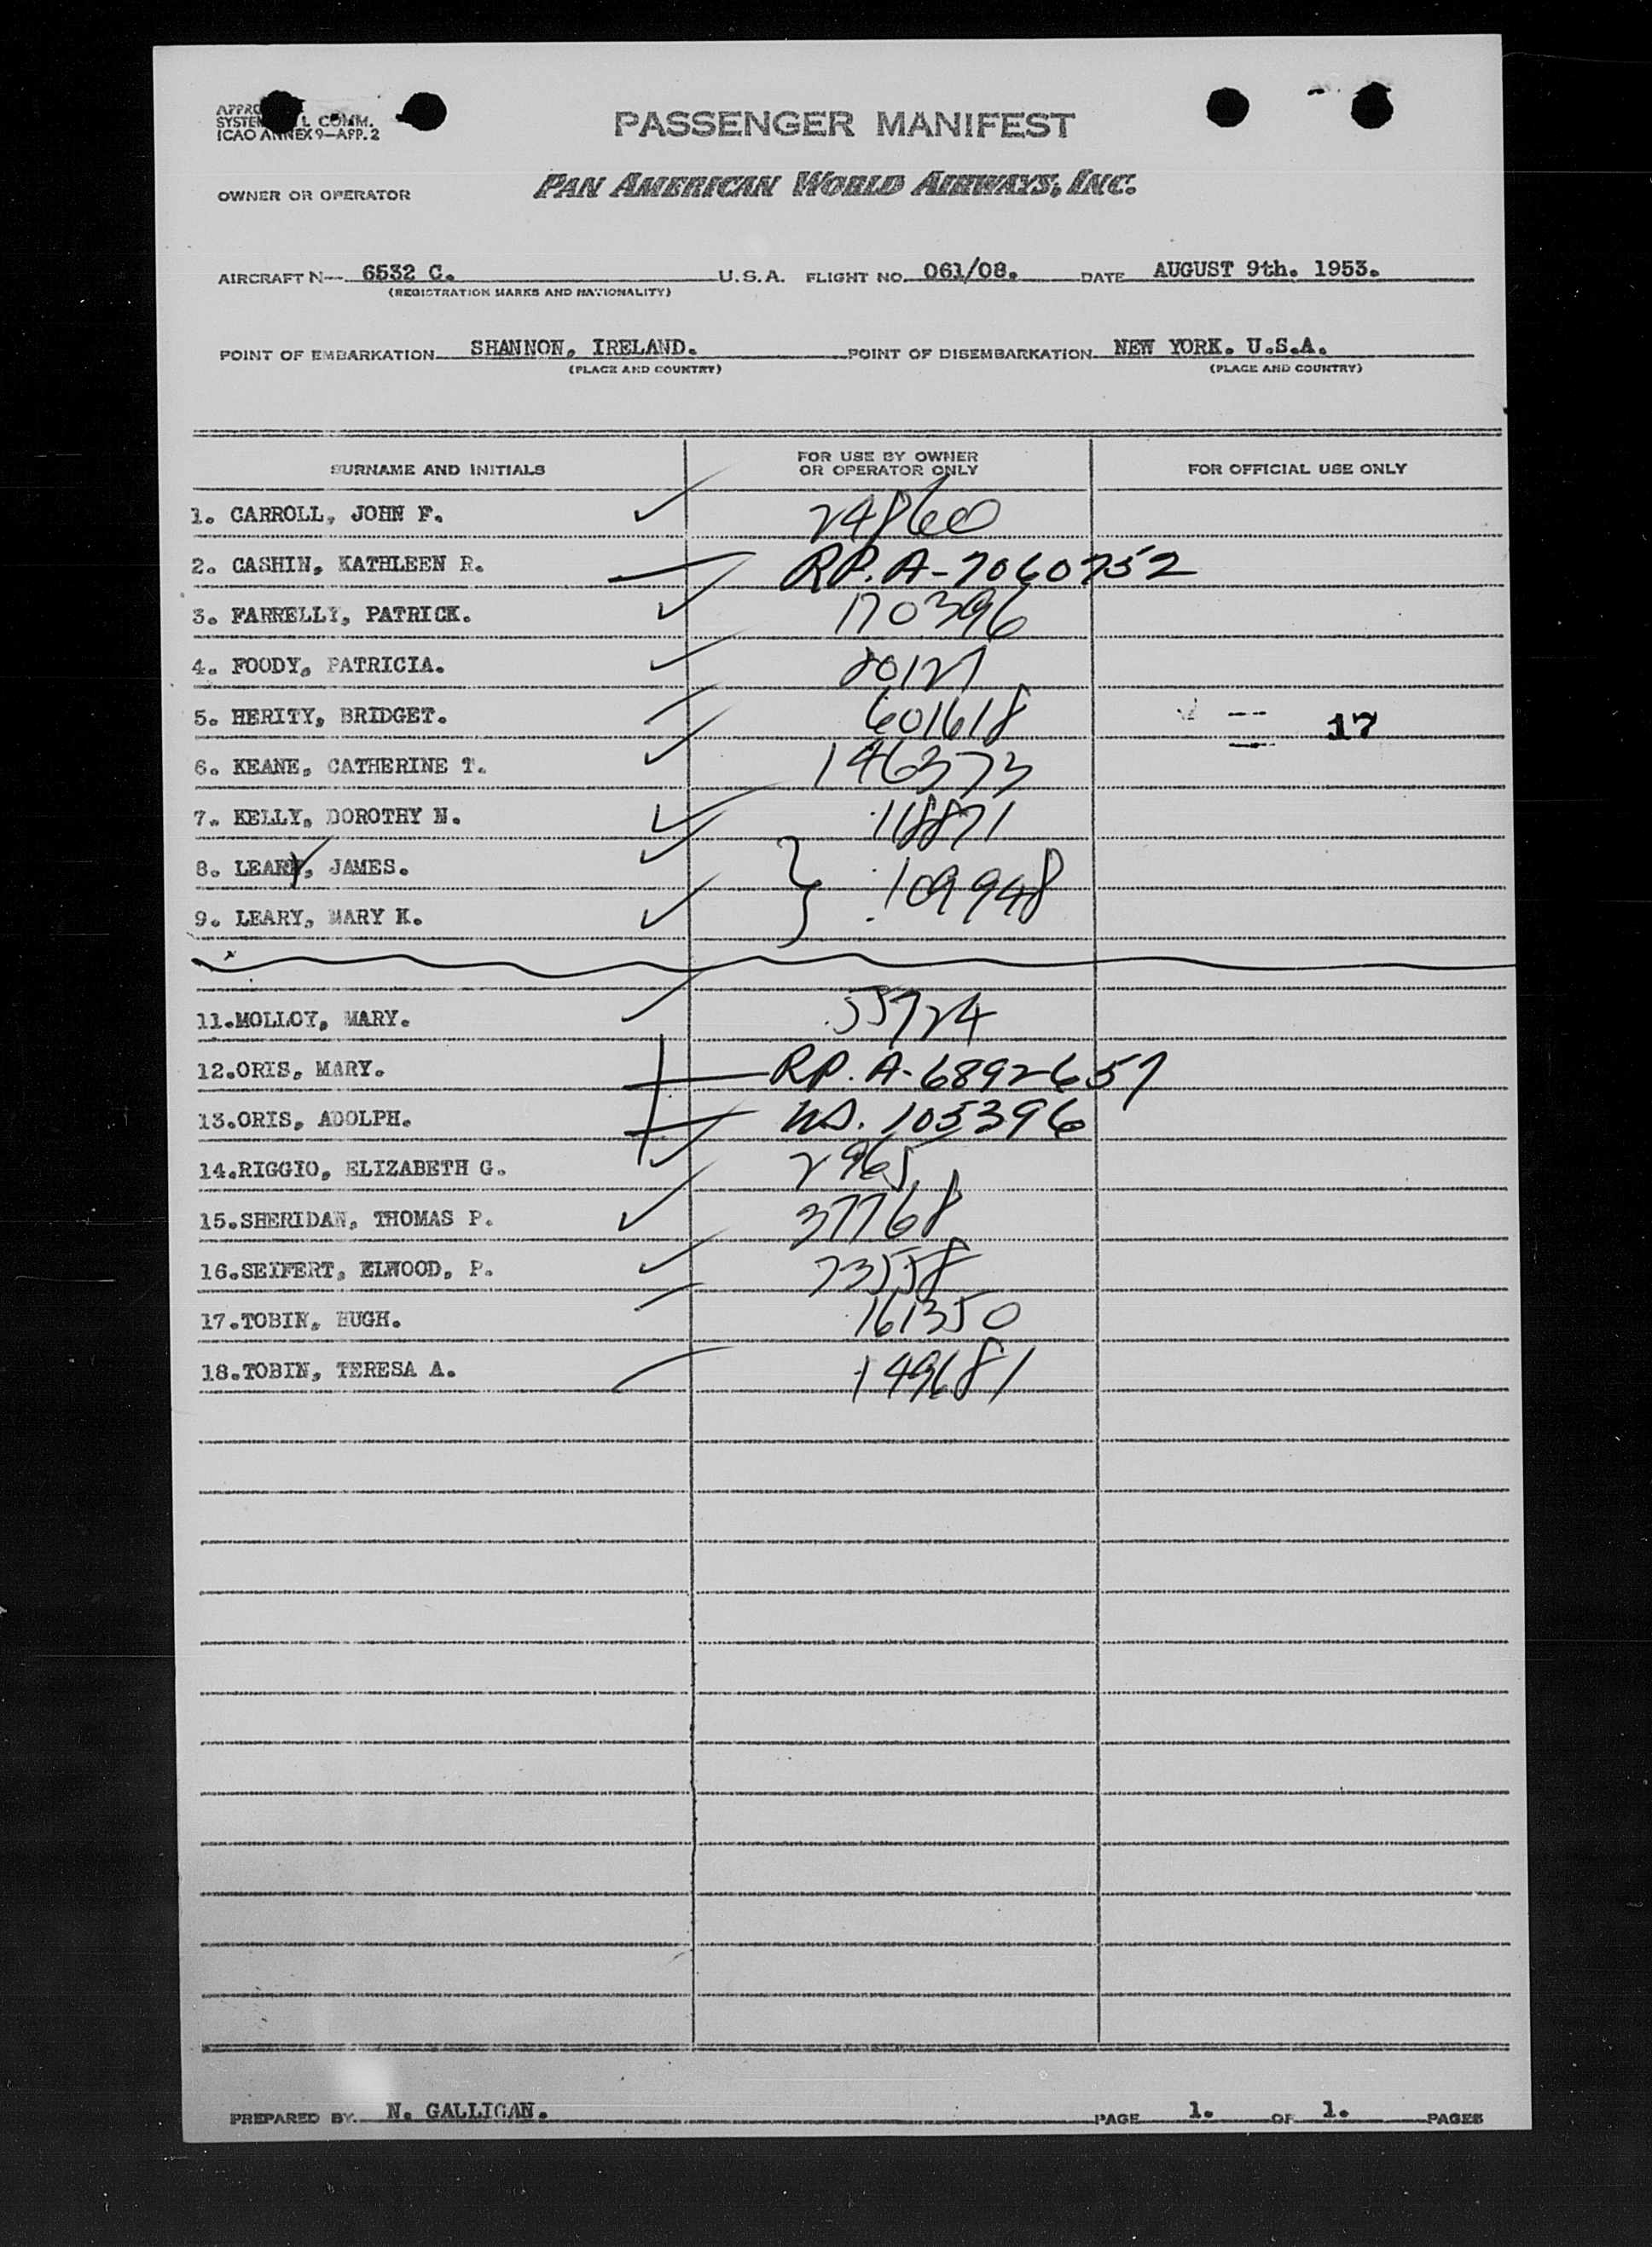 ICAO ANNEX 9—APP. 2
PASSENGER MANIFEST
OWNER OR OPERATOR PAN AMERICAN WORLD AIRWAYS, INC.
AIRCRAFT N— 6532 C. U.S.A. FLIGHT NO. 061/08. DATE AUGUST 9th. 1953.
(REGISTRATION MARKS AND NATIONALITY)
POINT OF EMBARKATION SHANNON, IRELAND. POINT OF DISEMBARKATION NEW YORK. U.S.A.
(PLACE AND COUNTRY) (PLACE AND COUNTRY)
SURNAME AND INITIALS FOR USE BY OWNER OR OPERATOR ONLY FOR OFFICIAL USE ONLY
1. CARROLL, JOHN F. 24860
2. CASHIN, KATHLEEN R. RP. A-7060752
3. FARRELLY, PATRICK. 170396
4. FOODY, PATRICIA. 80127
5. HERITY, BRIDGET. 601618 17
6. KEANE, CATHERINE T. 146373
7. KELLY, DOROTHY N. 118871
8. LEARY, JAMES.
109948
9. LEARY, MARY K.
11.MOLLOY, MARY. 55724
12.ORIS, MARY. RP. A-6892657
13.ORIS, ADOLPH. US. 105396
14.RIGGIO, ELIZABETH G. 2965
15.SHERIDAN, THOMAS P. 37768
16.SEIFERT, ELWOOD, P. 73558
17.TOBIN, HUGH. 161350
18.TOBIN, TERESA A. 149681
PREPARED BY N. GALLIGAN. PAGE 1. OF 1. PAGES